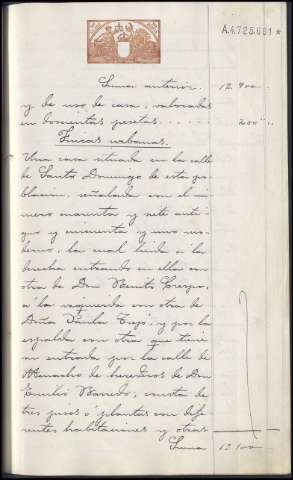 A.4.725.691*
Suma anterior. 12 900..
y de uso de casa, valorados
en doscientas pesetas..... 200"
Fincas urbanas.
Una casa situada en la calle
de Santo Domingo de esta po-
blación, señalada con el nú-
mero cuarenta y siete anti-
guo y cincuenta y uno mo-
derno, la cual linda á la
derecha entrando en ella con
otra de Don Benito Crespo,
á la izquierda con otra de
Doña Paula Trejo, y por la
espalda con otra que tiene
su entrada por la calle de
Menacho de herederos de Don
Emilio, consta de
tres pisos ó plantas con dife-
rentes habitaciones y otras
Suma 13 100